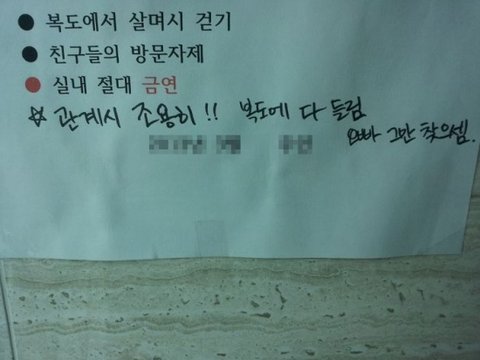 ● 복도에서 살며시 걷기
● 친구들의 방문자제
● 실내 절대 금연
☆ 관계시 조용히!! 복도에 다 들림
오빠 그만 찾으셈.